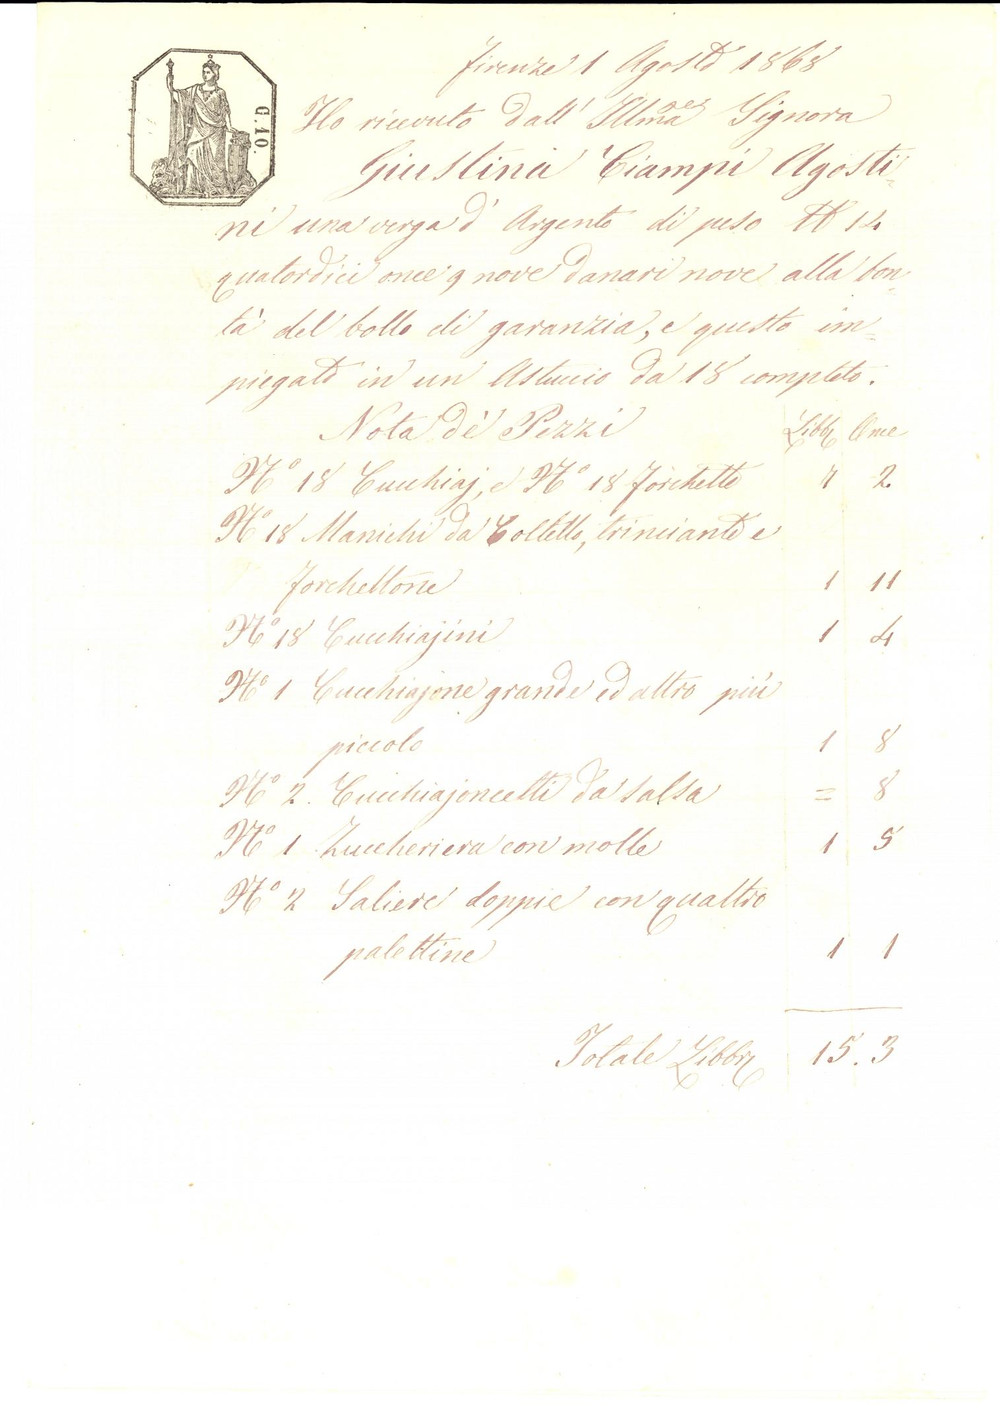 Firenze 1 Agosto 1868
G. 10.
Ho ricevuto dall' Illma Signora
Giustina Ciampi Agosti=
ni una verga d' Argento di peso ℔ 14
quatordici once 9 nove danari nove alla bon=
tà del bollo di garanzia, e questo im=
piegato in un Astuccio da 18 completo.
Nota dè Pezzi Libbr Once
N° 18 Cucchiaj, e N° 18 forchette 7 2
N° 18 Manichi da Coltello, trinciante e
forchettone 1 11
N° 18 Cucchiajini 1 4
N° 1 Cucchiajone grande ed altro più
piccolo 1 8
N° 2. Cucchiajoncelli da salsa = 8
N° 1 Zuccheriera con molle 1 5
N° 2 Saliere doppie con quattro
palettine 1 1
Totale Libbr 15. 3